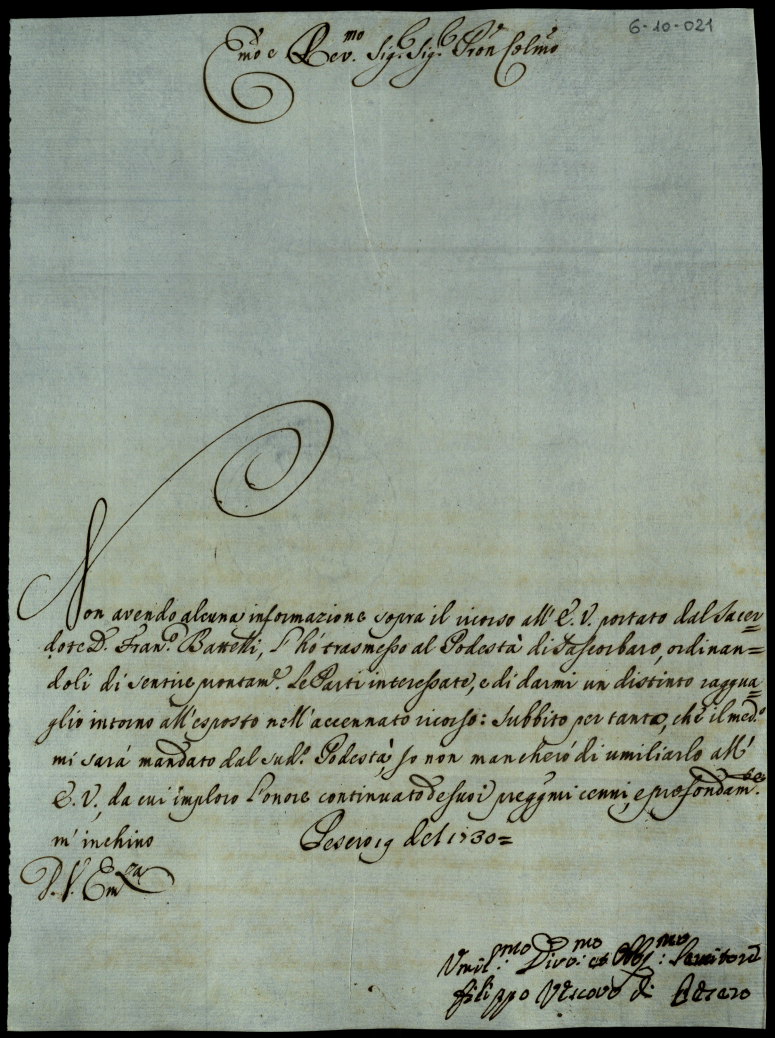 6-10-021
Emõ e Rev.mo Sig.r Sig.r Pron Colmõ
Non avendo alcuna informazione sopra il ricorso all' E. V. portato dal Sacer=
dote D. Fran.co Battelli, l'hò trasmesso al Podestà di Sascorbaro, ordinan=
doli di sentire prontam.e le Parti interessate, e di darmi un distinto raggua=
glio intorno all'esposto nell'accennato ricorso: Subbito per tanto, che il med.o
mi sarà mandato dal sud.o Podestà, Io non mancherò di umiliarlo all'
E. V., da cui imploro l'onore continuato de suoi preggmi cenni, e profondam.te
m' inchino
Pesero 19 del 1730=
D. V. Em.za
Umil.mo Divo.mo et Obg.mo Servitore
Filippo Vescovo di Pesaro